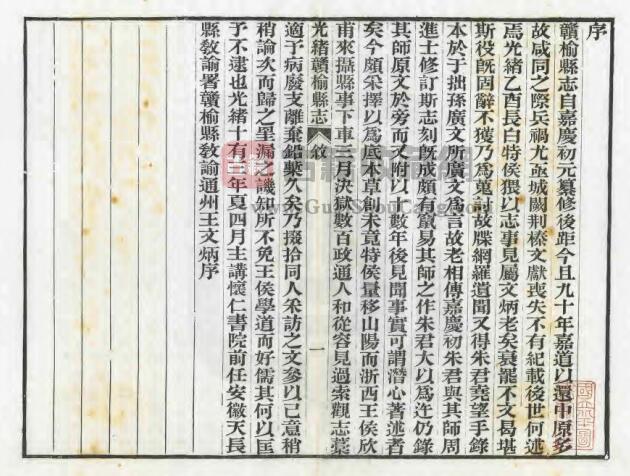 序
贛榆縣志自嘉慶初元纂修後距今且九十年嘉道以還中原多
故咸同之際兵禍尤亟城闕荆榛文獻喪失不有紀載後世何述
焉光緒乙酉長白特侯猥以志事見屬文炳老矣衰罷不文易堪
斯役旣固辭不獲乃爲蒐討故牒網羅遺聞又得朱君堯望手錄
本於于拙孫廣文所廣文爲言故老相傳嘉慶初朱君與其師周
進士修訂斯志刻旣成頗有竄易其師之作朱君大以爲迕仍錄
其師原文於旁而又附以十數年後見聞事實可謂潛心著述者
矣今頗采擇以爲底本草創未竟特侯量移山陽而浙西王侯欣
甫來攝縣事下車三月決獄數百政通人和從容見過索觀志藁
光緒贛榆縣志 敘 一
適于病廢支離棄鉛槧久矣乃掇拾同人采訪之文參以己意稍
稍論次而歸之罣漏之譏知所不免王侯學道而好儒其何以匡
予不逮也光緒十有二年夏四月主講懷仁書院前任安徽天長
縣敎諭署贛榆縣敎諭通州王文炳序